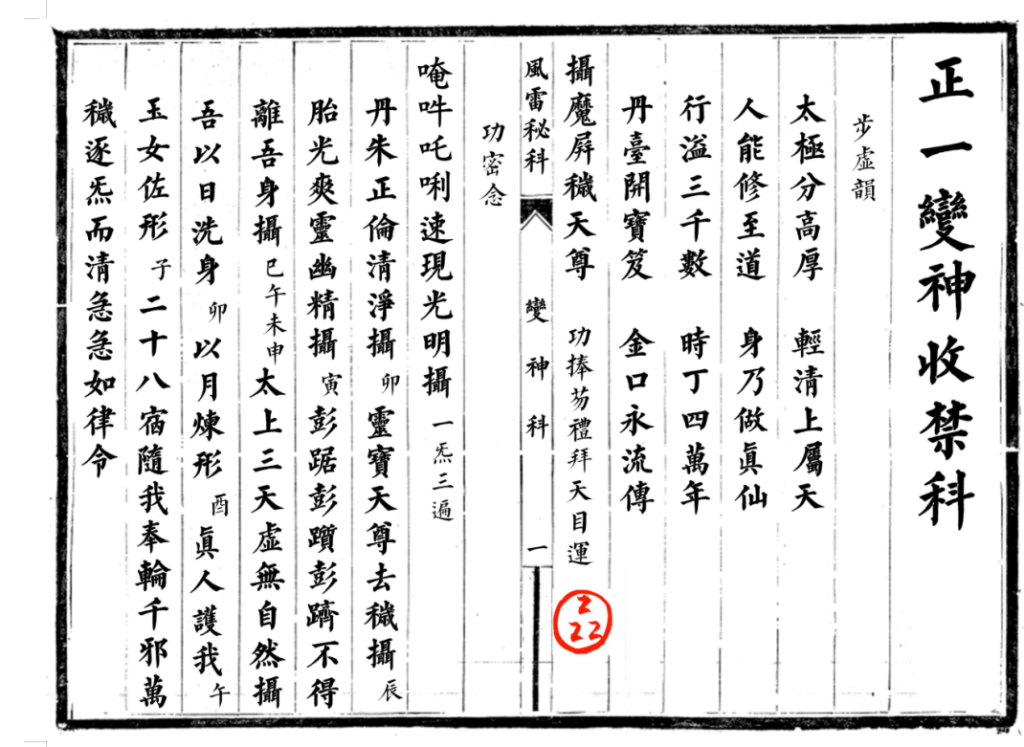 正一變神收禁科
步虛韻
太極分高厚　輕清上屬天
人能修至道　身乃做眞仙
行溢三千數　時丁四萬年
丹臺開寶笈　金口永流傳
攝魔屏穢天尊　功捧笏禮拜天目運
2
22
風雷秘科　變神科　一
功密念
唵吽吒唎速現光明攝　一炁三遍
丹朱正倫清淨攝　卯　靈寶天尊去穢攝　辰
胎光爽靈幽精攝　寅　彭踞彭躓彭躋不得
離吾身攝　巳午未申　太上三天虛無自然攝
吾以日洗身　卯　以月煉形　酉　眞人護我　午
玉女佐形　子　二十八宿隨我奉輪千邪萬
穢逐炁而清急急如律令